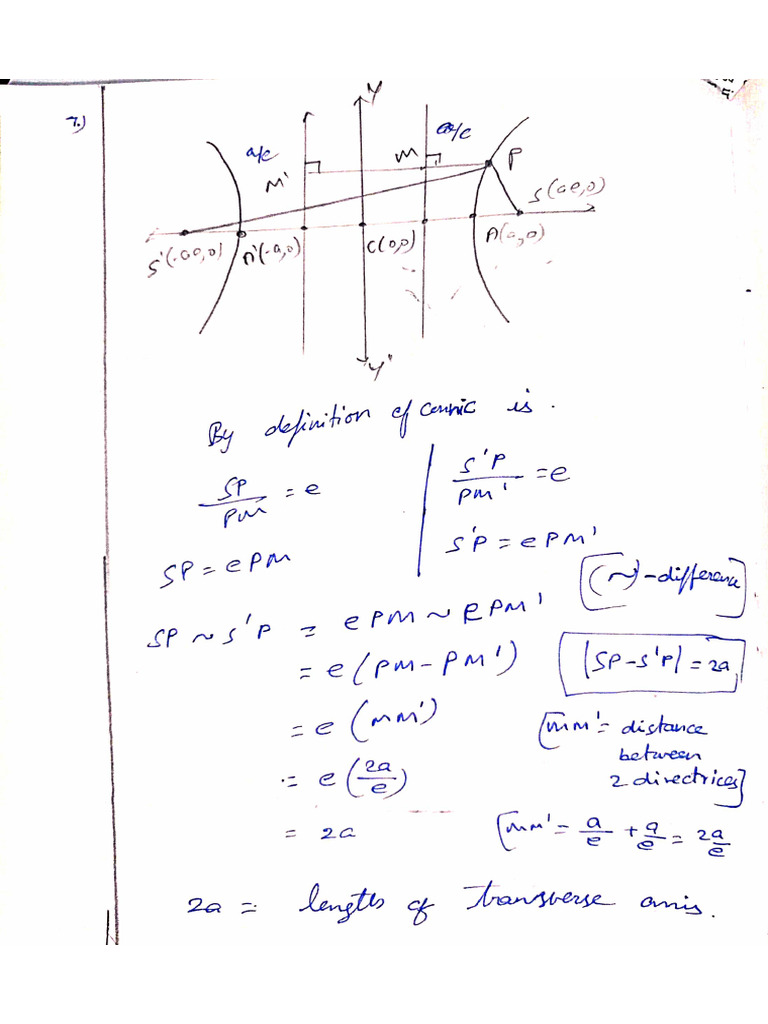 7.)
Y
a/e
a/e
M'
M
P
S(ae,0)
S'(-ae,0)
A'(-a,0)
C(0,0)
A(a,0)
Y'
By definition of connic is.
SP/PM = e
S'P/PM' = e
SP = ePM
S'P = ePM'
(~) - difference
SP ~ S'P = ePM ~ ePM'
= e(PM - PM')
|SP - S'P| = 2a
= e(MM')
[MM' = distance
between
2 directrices]
= e(2a/e)
= 2a
[MM' = a/e + a/e = 2a/e
2a = length of transverse axis.